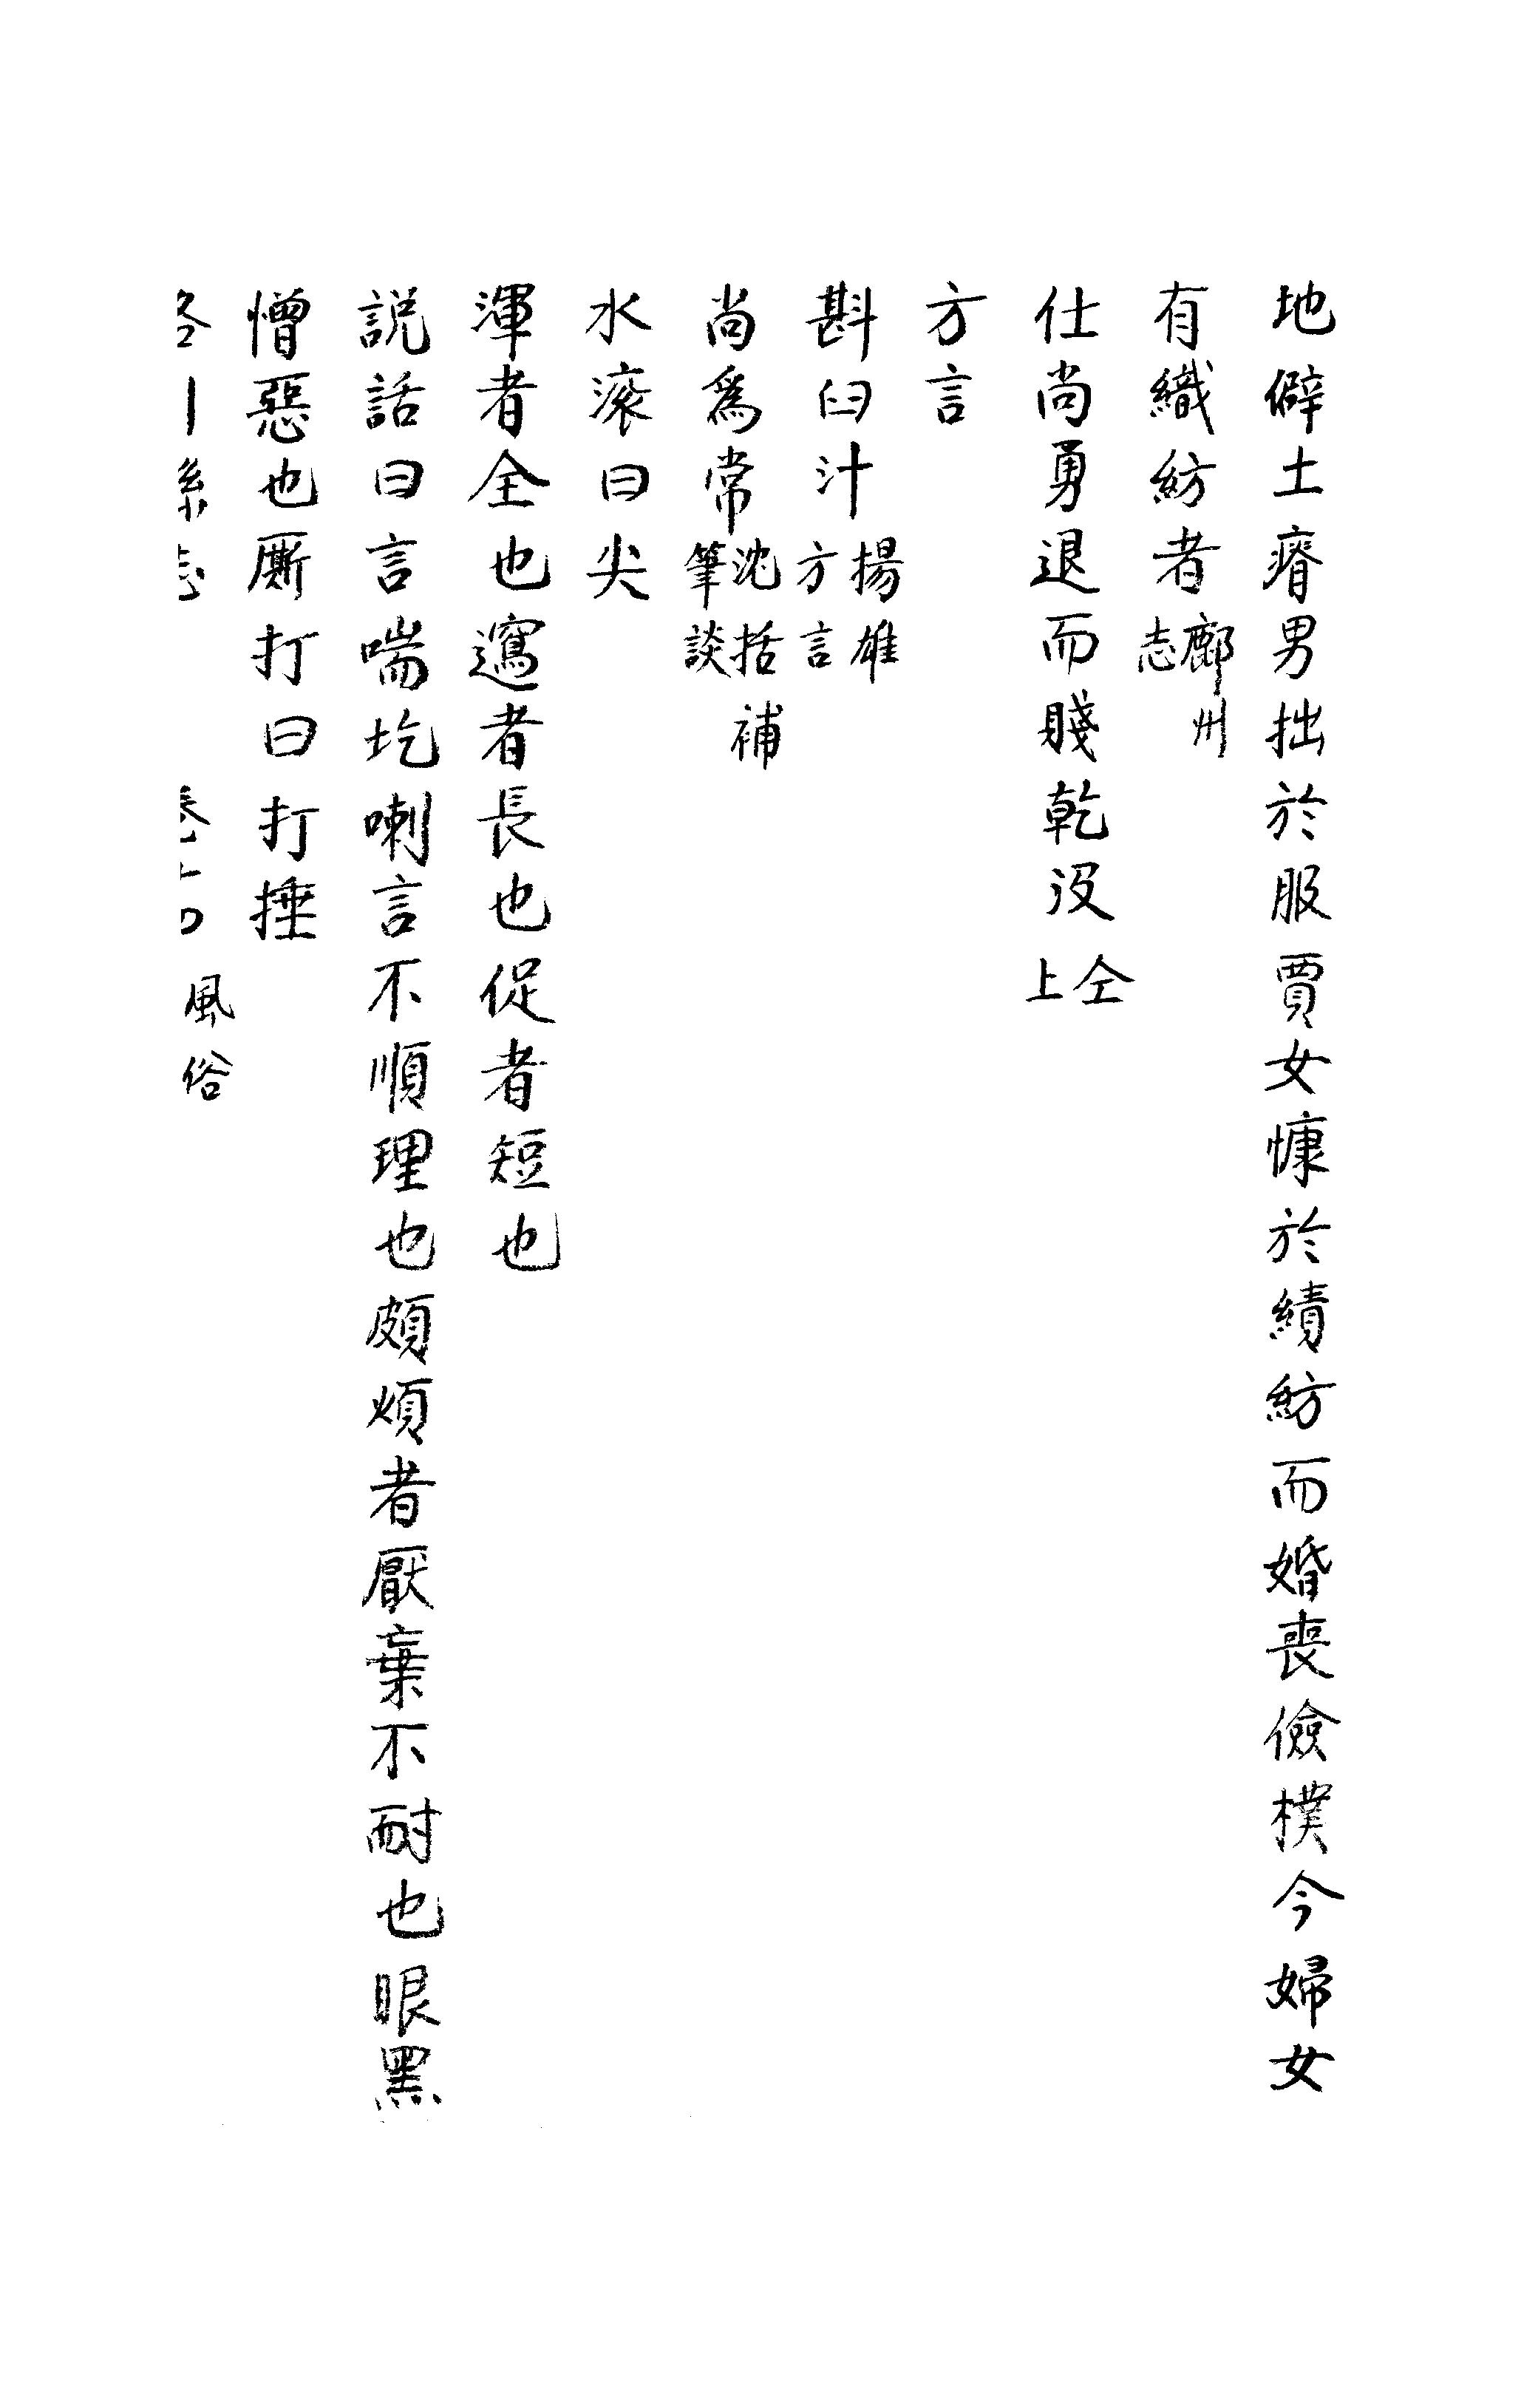 地僻土瘠男拙於服賈女慵於績紡而婚喪儉樸今婦女
有織紡者鄜州志
仕尚勇退而賤乾没仝上
方言
斟曰汁揚雄方言
尚爲常沈括筆談補
水滚曰尖
渾者全也䆳者長也促者短也
説話曰言喘圪喇言不順理也頗煩者厭棄不耐也眼黑
憎惡也厮打曰打捶
洛川縣志 卷十四 風俗